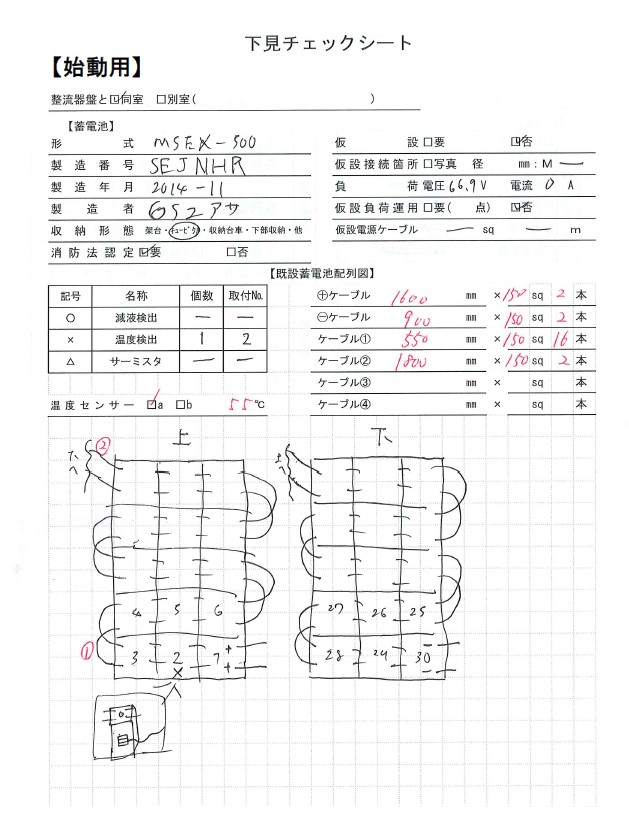 下見チェックシート
【始動用】
整流器盤と☑同室 □別室( )
【蓄電池】
形式 MSEX-500
製造番号 SEJNHR
製造年月 2014-11
製造者 GSユアサ
収納形態 架台・キュービクル・収納台車・下部収納・他
消防法認定 ☑要 □否
仮設 □要 ☑否
仮設接続箇所 □写真 径 mm:M ー
負荷 電圧 66.9V 電流 0 A
仮設負荷運用 □要( 点) ☑否
仮設電源ケーブル ー sq ー m
【既設蓄電池配列図】
記号 名称 個数 取付No.
○ 減液検出 ー ー
× 温度検出 1 2
△ サーミスタ ー ー
温度センサー ☑a □b 55℃
⊕ケーブル 1600 mm ×150 sq 2 本
⊖ケーブル 900 mm ×150 sq 2 本
ケーブル① 550 mm ×150 sq 16 本
ケーブル② 1800 mm ×150 sq 2 本
ケーブル③ mm × sq 本
ケーブル④ mm × sq 本
上
② 下へ
4 5 6
① 3 2 1 + +
×
下
上へ
27 26 25
28 29 30 − −